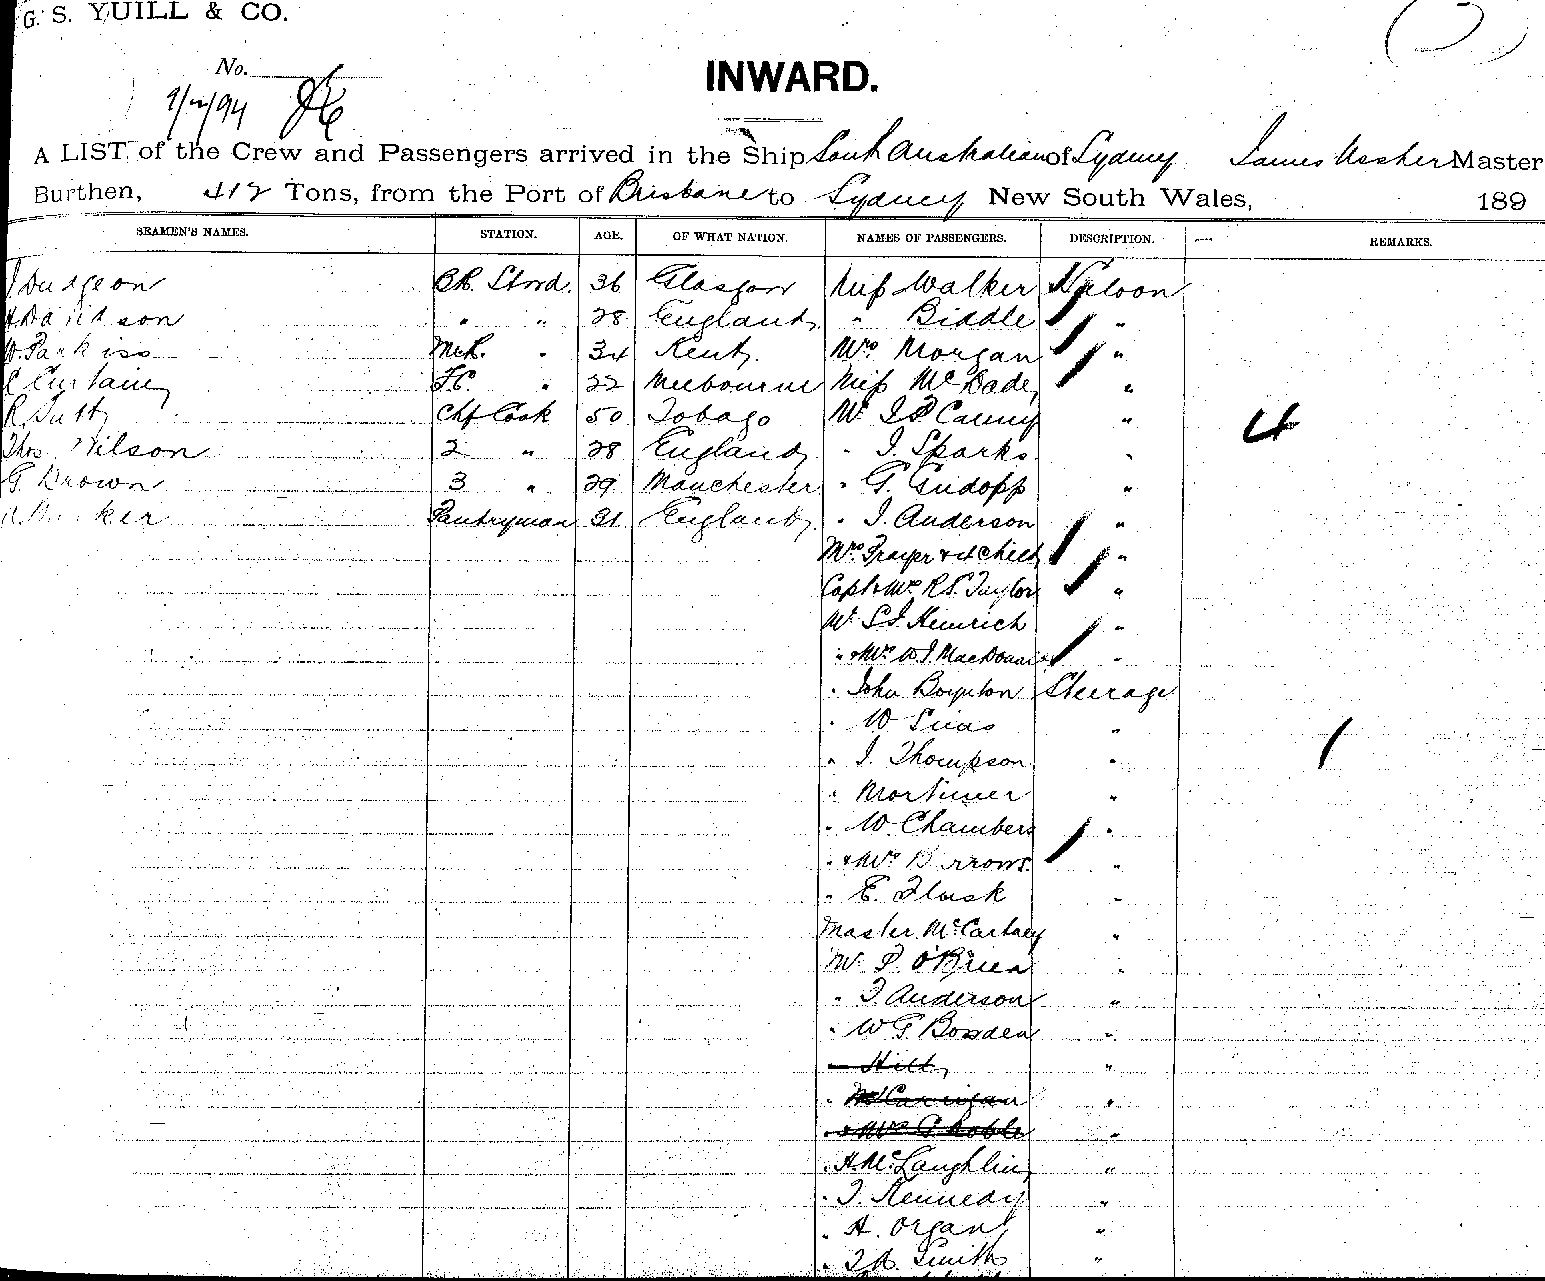 G. S. YUILL & CO.
No.
INWARD.
A LIST of the Crew and Passengers arrived in the Ship South Australian of Sydney James Ussher Master
Burthen, 412 Tons, from the Port of Brisbane to Sydney New South Wales, 189
SEAMEN'S NAMES. STATION. AGE. OF WHAT NATION. NAMES OF PASSENGERS. DESCRIPTION. REMARKS.
J Dudgeon BR. Stwd. 36 Glasgow Miss Walker Saloon
Davidson " " 28 England " Biddle "
W. Parkiss " 34 Kent Mrs Morgan "
C Curtain " 22 Melbourne Miss McDade "
R Tutt Chf Cook 50 Tobago Mr Canny " 4
Thos Wilson 2 " 28 England " J. Sparks "
G Brown 3 " 29 Manchester " G. Gudopp "
Pantryman 21 England " J. Anderson "
Mrs Frazer & 4 child "
Capt & Mrs R.S. Taylor "
Mr Heinrich "
" & Mrs "
" John Boynton Steerage
" W "
" J. Thompson " 1
" Mortimer "
" W Chambers "
" & Mrs Burrows "
" E. Flask "
Master McCartney "
Mr P. O'Brien "
" J Anderson "
" W G Bowden "
Hill "
" "
" & Mrs G Noble "
" H. McLaughlin "
" J. Kennedy "
" A. Organ "
" Smith "